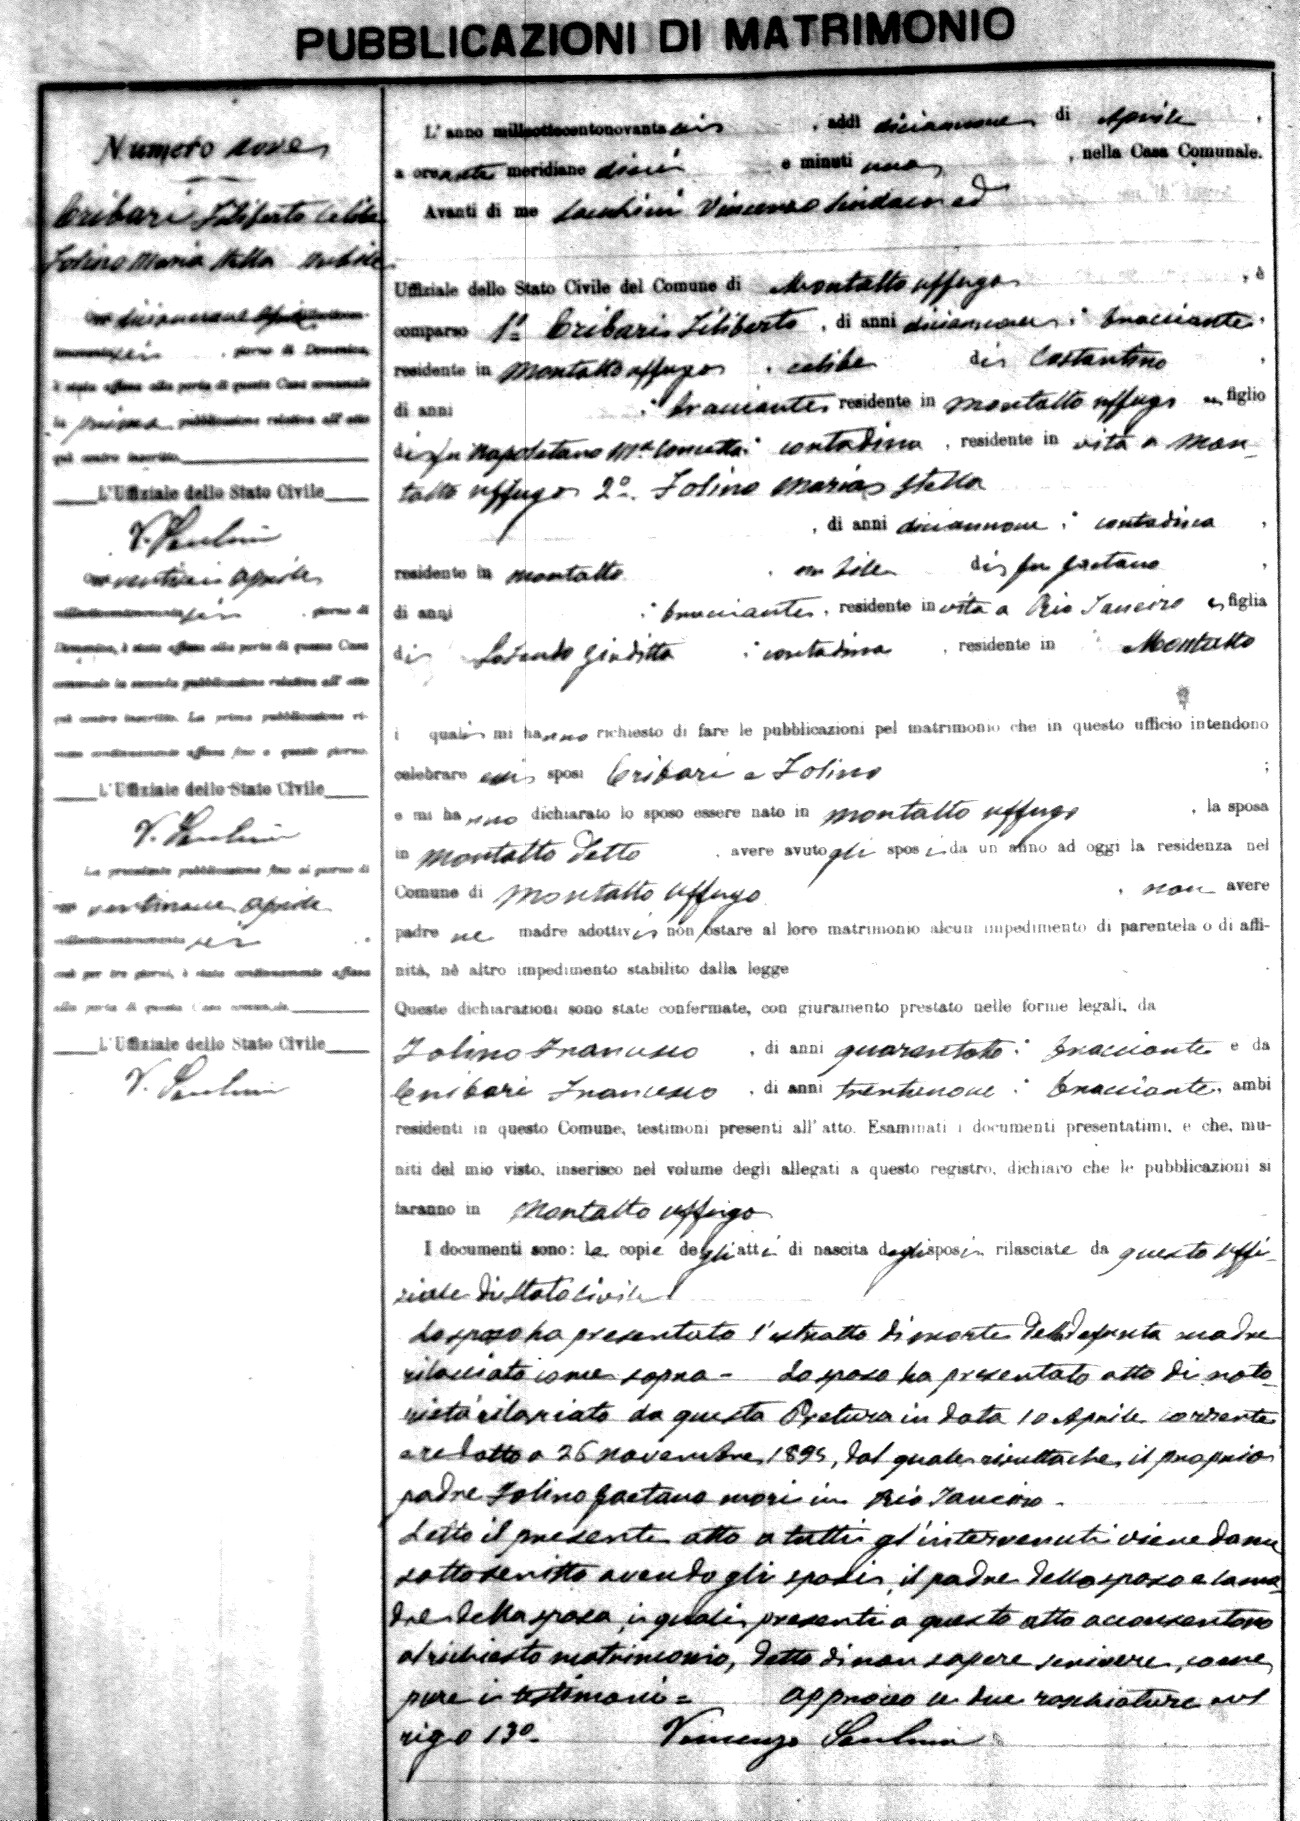 PUBBLICAZIONI DI MATRIMONIO
Numero nove
Cribari Filiberto celibe
Folino Maria Stella nubile
Oggi diciannove Aprile
sei , giorno di Domenica,
è stata affissa alla porta di questa Casa comunale
la prima pubblicazione relativa all' atto
qui contro inscritto.
L'Uffiziale dello Stato Civile
Oggi ventisei Aprile
millottocentonovanta sei , giorno di
Domenica, è stata affissa alla porta di questa Casa
comunale la seconda pubblicazione relativa all' atto
qui contro inscritto. La prima pubblicazione ri-
mase continuamente affissa fino a questo giorno.
L'Uffiziale dello Stato Civile
La precedente pubblicazione fino al giorno di
oggi ventinove Aprile
millottocentonovanta sei , e
così per tre giorni, è stata continuamente affissa
alla porta di questa Casa comunale.
L'Uffiziale dello Stato Civile
L' anno millottocentonovanta sei , addì diciannove di Aprile ,
a ore ante meridiane dieci e minuti uno , nella Casa Comunale.
Avanti di me Vincenzo Sindaco ed
Uffiziale dello Stato Civile del Comune di Montalto Uffugo , è
comparso 1º Cribari Filiberto , di anni diciannove , bracciante ,
residente in Montalto Uffugo , celibe di Costantino ,
di anni , bracciante residente in Montalto Uffugo e figlio
di fu Napoletano Mª Concetta , contadina , residente in vita a Mon-
talto Uffugo 2º Folino Maria Stella
, di anni diciannove , contadina ,
residente in Montalto , nubile di fu Gaetano ,
di anni , bracciante , residente in vita a Rio Janeiro e figlia
di Giuditta , contadina , residente in Montalto
i quali mi hanno richiesto di fare le pubblicazioni pel matrimonio che in questo ufficio intendono
celebrare essi sposi Cribari e Folino ;
e mi hanno dichiarato lo sposo essere nato in Montalto Uffugo , la sposa
in Montalto detto , avere avuto gli sposi da un anno ad oggi la residenza nel
Comune di Montalto Uffugo , non avere
padre ne madre adottivi non ostare al loro matrimonio alcun impedimento di parentela o di affi-
nità, nè altro impedimento stabilito dalla legge
Queste dichiarazioni sono state confermate, con giuramento prestato nelle forme legali, da
Folino Francesco , di anni quarantotto , bracciante e da
Cribari Francesco , di anni trentanove , bracciante , ambi
residenti in questo Comune, testimoni presenti all' atto. Esaminati i documenti presentatimi, e che, mu-
niti del mio visto, inserisco nel volume degli allegati a questo registro, dichiaro che le pubblicazioni si
faranno in Montalto Uffugo
I documenti sono: le copie degli atti di nascita degli sposi rilasciate da questo Uffi-
ziale di Stato Civile
Lo sposo ha presentato l'estratto di morte della defunta madre
rilasciato come sopra - La sposa ha presentato atto di noto-
rietà rilasciato da questa Pretura in data 10 Aprile corrente
e redatto a 26 Novembre 1895, dal quale risulta che il proprio
padre Folino Gaetano morì in Rio Janeiro -
Letto il presente atto a tutti gl'intervenuti viene da me
sottoscritto avendo gli sposi, il padre dello sposo e la ma-
dre della sposa, i quali presenti a questo atto acconsentono
al richiesto matrimonio, detto di non sapere scrivere, come
pure i testimoni = Approvo le due raschiature sul
rigo 13º. Vincenzo